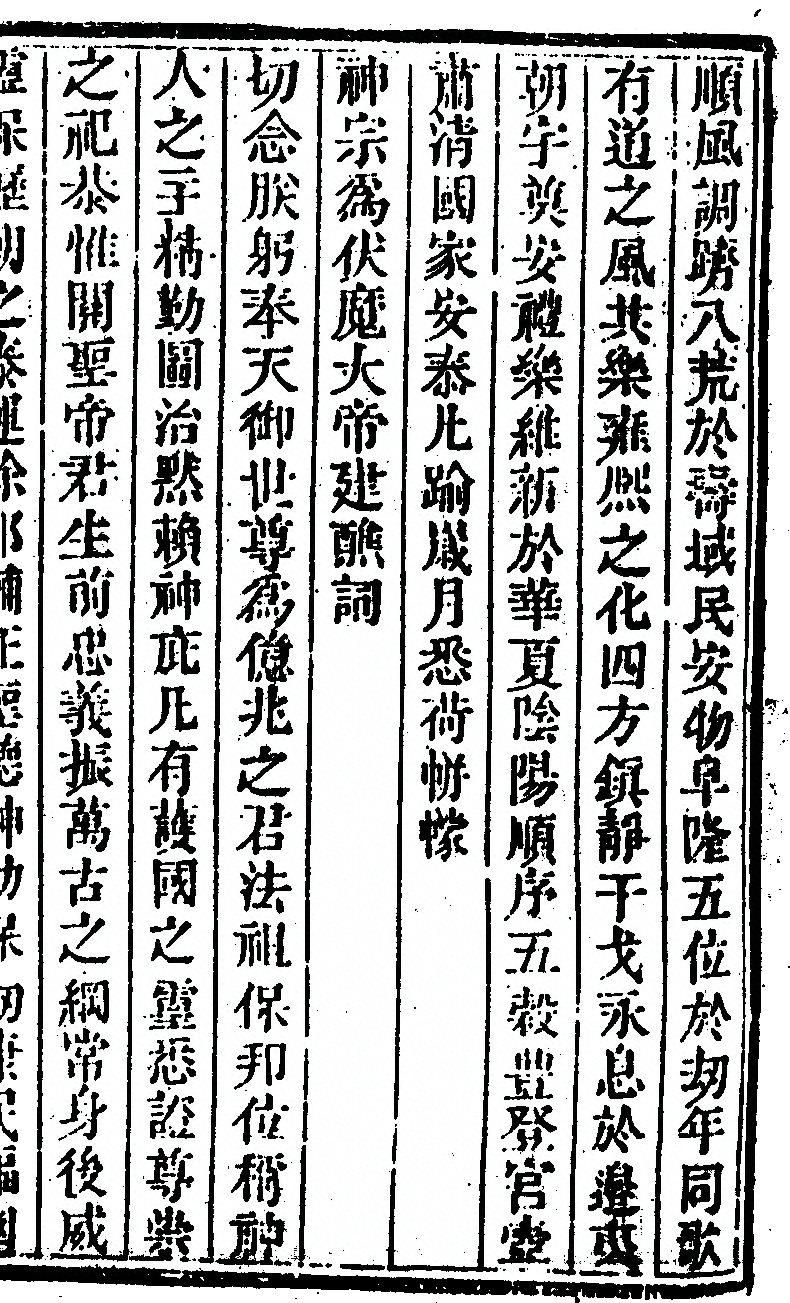 順風調躋八荒於壽域民安物阜隆五位於刼年同歌
有道之風共樂雍熙之化四方鎮靜干戈永息於邊夷
朝宇奠安禮樂維新於華夏陰陽順序五穀豐登宫壼
肅清國家安泰凡踰歲月悉荷帡幪
神宗為伏魔大帝建醮詞
切念朕躬奉天御世尊為億兆之君法祖保邦位稱神
人之主精勤圖治黙賴神庇凡有護國之靈悉證尊崇
之祀恭惟關聖帝君生前忠義振萬古之綱常身後威
靈保歷朝之泰運除邪輔正聖德神功保刼康民福國